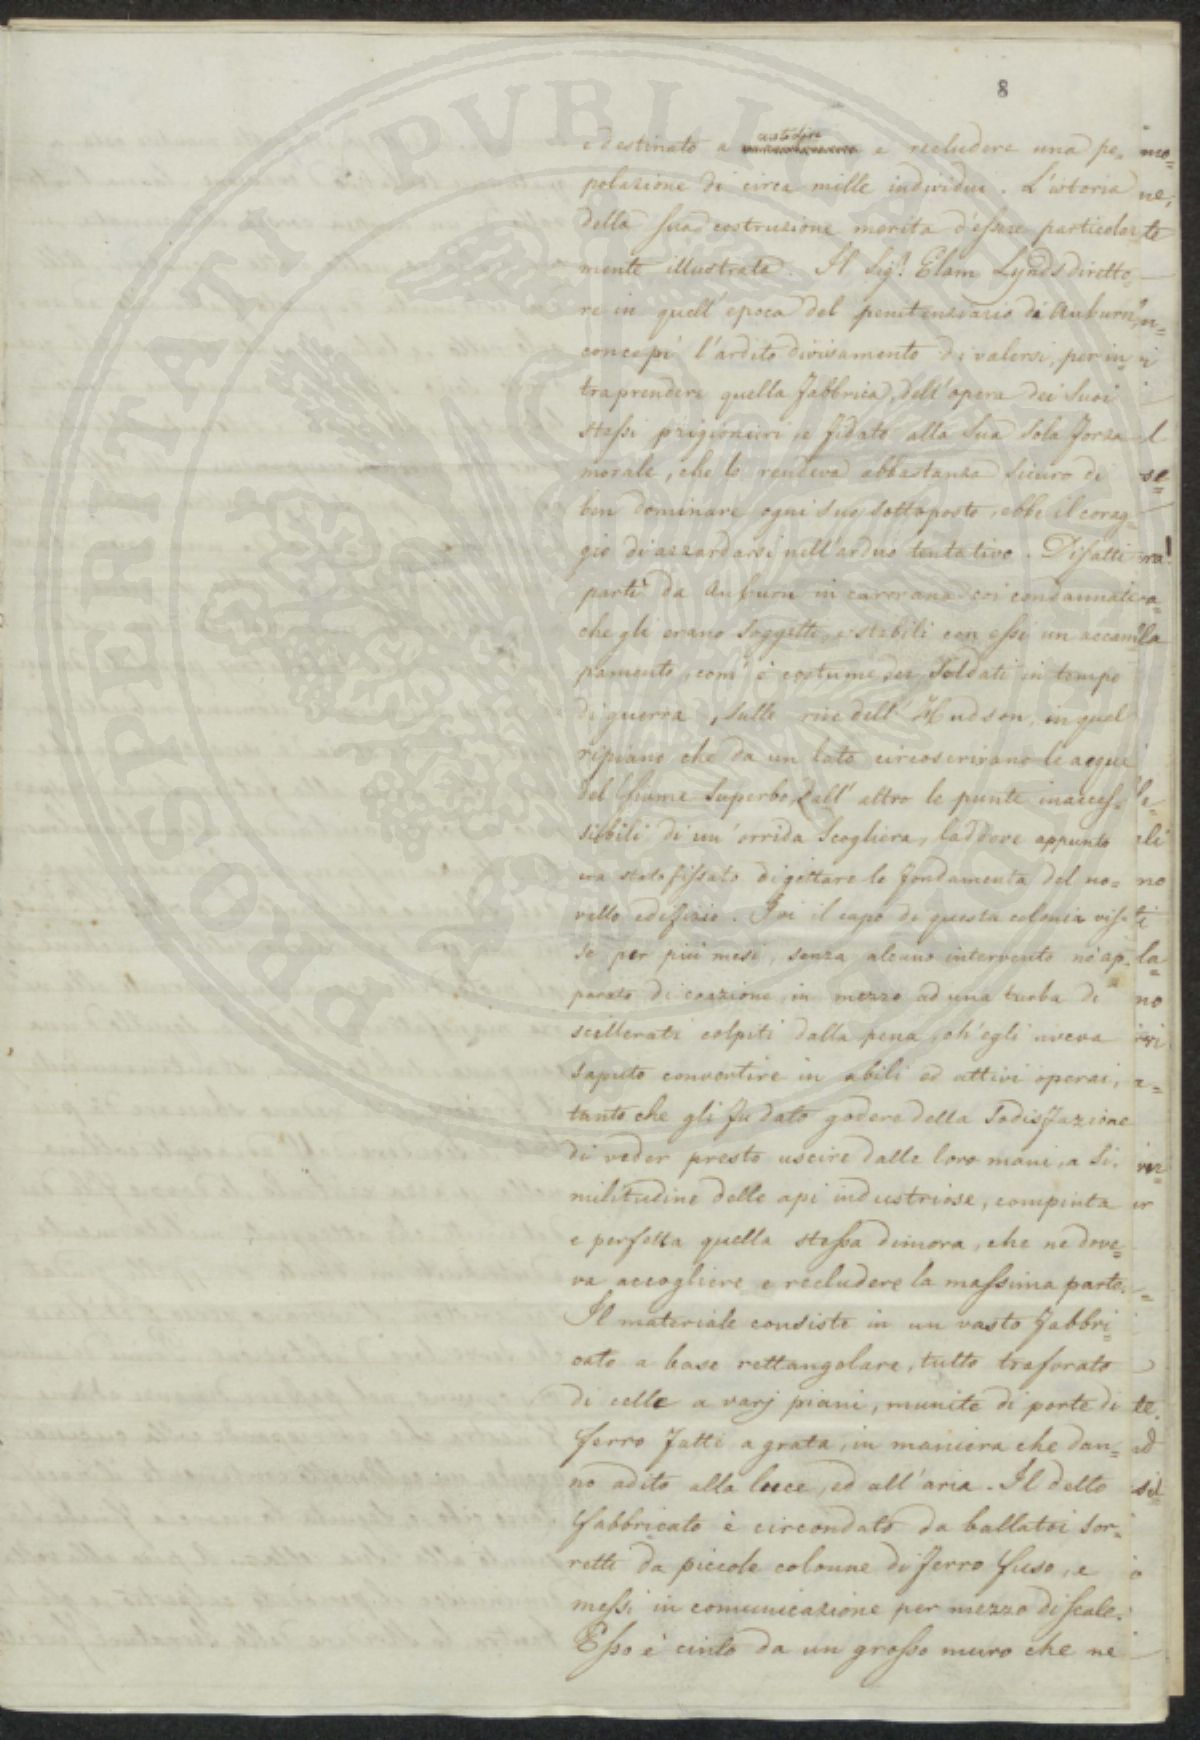 8
e destinato a custodire e recludere una po=
polazione di circa mille individui. L'istoria
della sua costruzione merita d'essere particolar
mente illustrata. Il Sig.r Elam Lynds diretto=
re in quell'epoca del penitenziario di Auburn,
concepì l'ardito divisamento di valersi, per in=
traprendere quella fabbrica, dell'opera dei suoi
stessi prigionieri, e fidato alla sua sola forza
morale, che lo rendeva abbastanza sicuro di
ben dominare ogni suo sottoposto, ebbe il corag=
gio di azzardarsi nell'arduo tentativo. Difatti
partì da Auburn in carovana coi condannati
che gli erano soggetti, e stabilì con essi un accam=
pamento, com'è costume dei Soldati in tempo
di guerra, sulle rive dell'Hudson, in quel
ripiano che da un lato circoscrivano le acque
del fiume superbo, dall'altro le punte inacces=
sibili di un'orrida scogliera, laddove appunto
era stato fissato di gettare le fondamenta del no=
vello edifizio. Ivi il capo di questa colonia vis=
se per più mesi, senza alcuno intervento nè ap=
parato di coazione, in mezzo ad una turba di
scellerati colpiti dalla pena, ch'egli aveva
saputo convertire in abili ed attivi operai,
tanto che gli fu dato godere della sodisfazione
di veder presto uscire dalle loro mani, a si=
militudine delle api industriose, compiuta
e perfetta quella stessa dimora, che ne dove=
va accogliere e recludere la massima parte.
Il materiale consiste in un vasto fabbri=
cato a base rettangolare, tutto traforato
di celle a varj piani, munite di porte di
ferro fatte a grata, in maniera che dan=
no adito alla luce, ed all'aria. Il detto
fabbricato è circondato da ballatoi sor=
retti da piccole colonne di ferro fuso, e
messi in comunicazione per mezzo di scale.
Esso è cinto da un grosso muro che ne
PROSPERITATI PVBLICAE